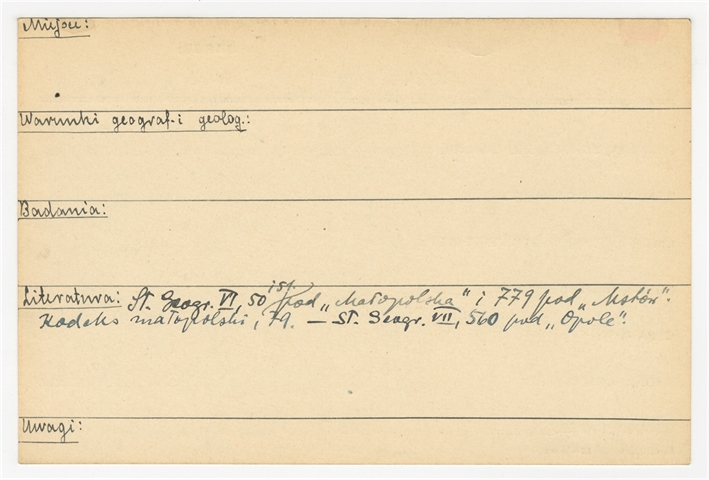 Miejsc:
Warunki geograf. i geolog.:
Badania:
Literatura: Sł. Geogr. VI, 50 i sł. pod „Małopolska" i 779 pod „Mstów".
Kodeks małopolski, 79. — Sł. Geogr. VII, 560 pod „Opole".
Uwagi: